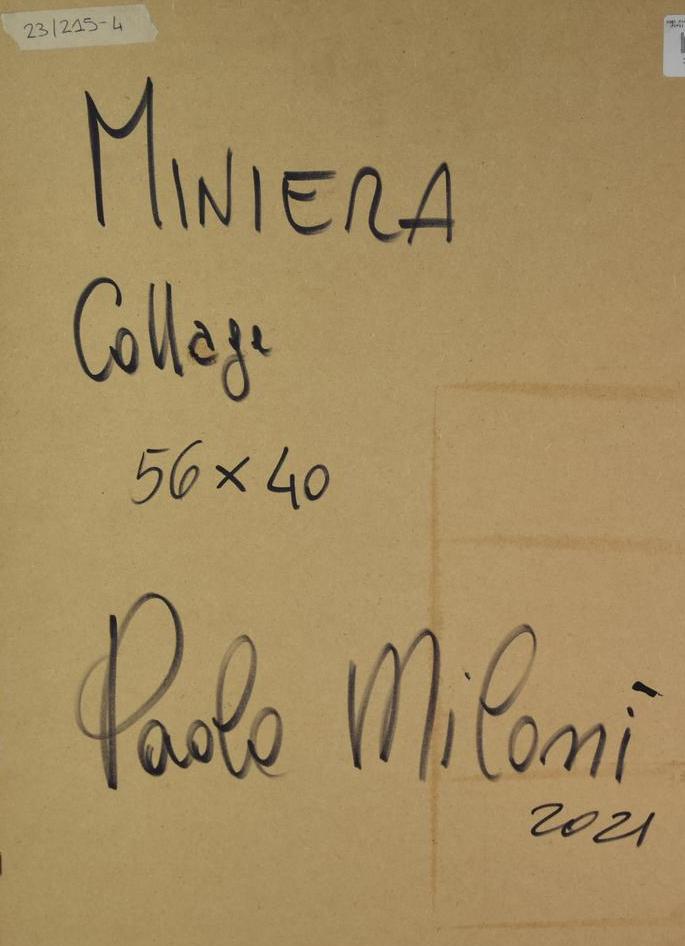 23/215-4
MINIERA
Collage
56 × 40
Paolo Miloni
2021